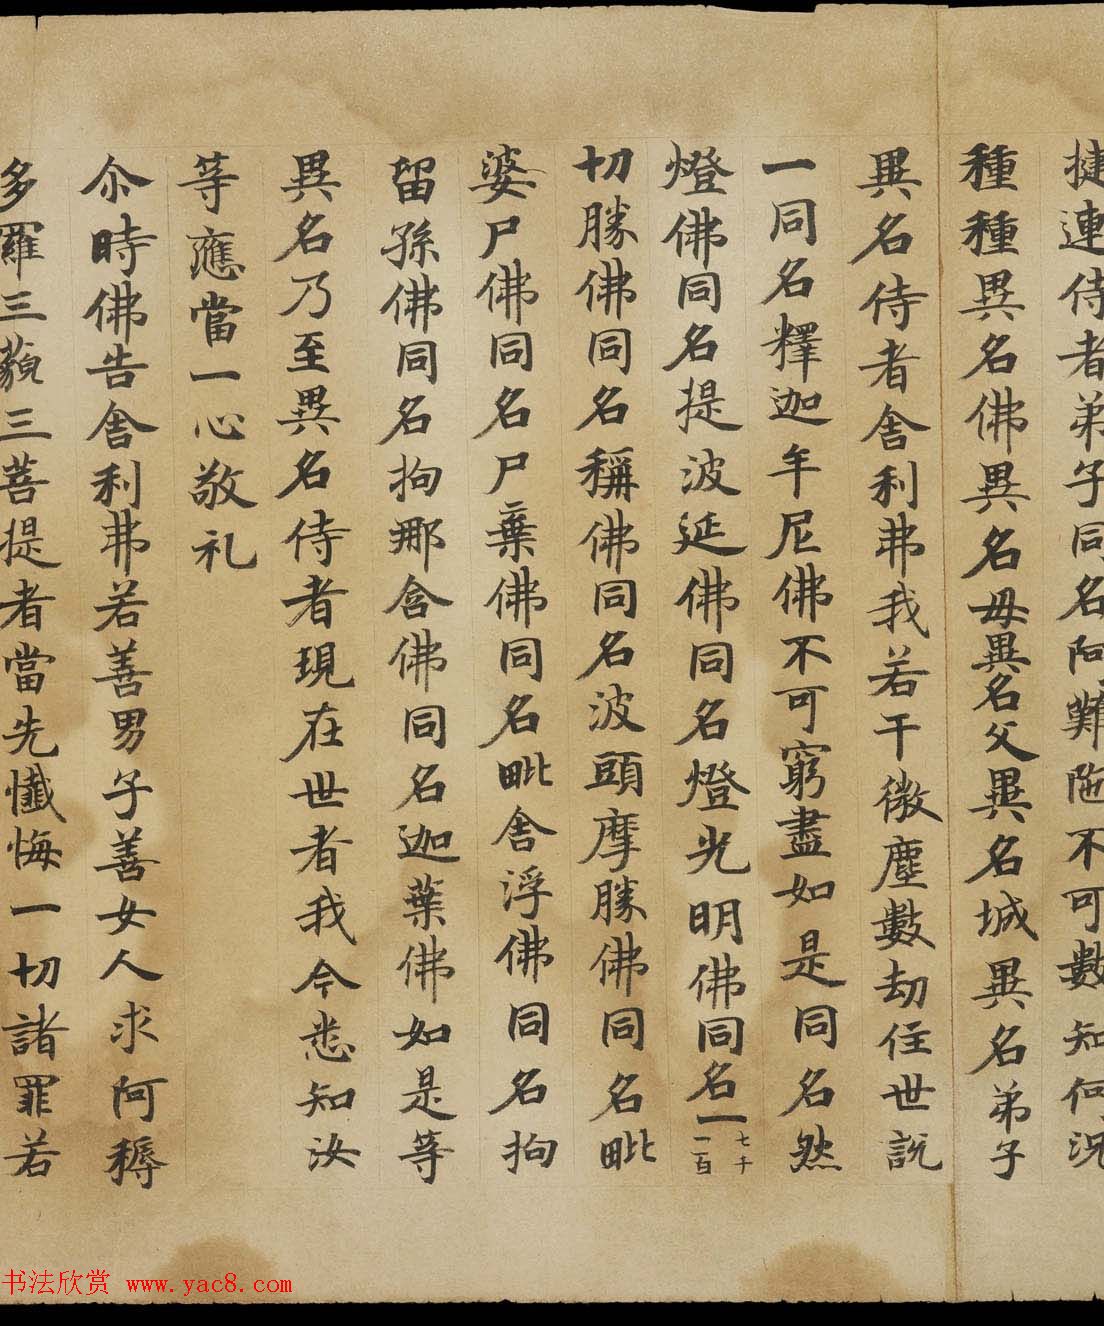 揵連侍者弟子同名阿難陁不可數知何況
種種異名佛異名母異名父異名城異名弟子
異名侍者舍利弗我若干微塵數劫住世說
一同名釋迦牟尼佛不可窮盡如是同名然
燈佛同名提波延佛同名燈光明佛同名一
七千
一百
切勝佛同名稱佛同名波頭摩勝佛同名毗
婆尸佛同名尸棄佛同名毗舍浮佛同名拘
留孫佛同名拘那含佛同名迦葉佛如是等
異名乃至異名侍者現在世者我今悉知汝
等應當一心敬礼
尒時佛告舍利弗若善男子善女人求阿耨
多羅三藐三菩提者當先懺悔一切諸罪若
书法欣赏 www.yac8.com